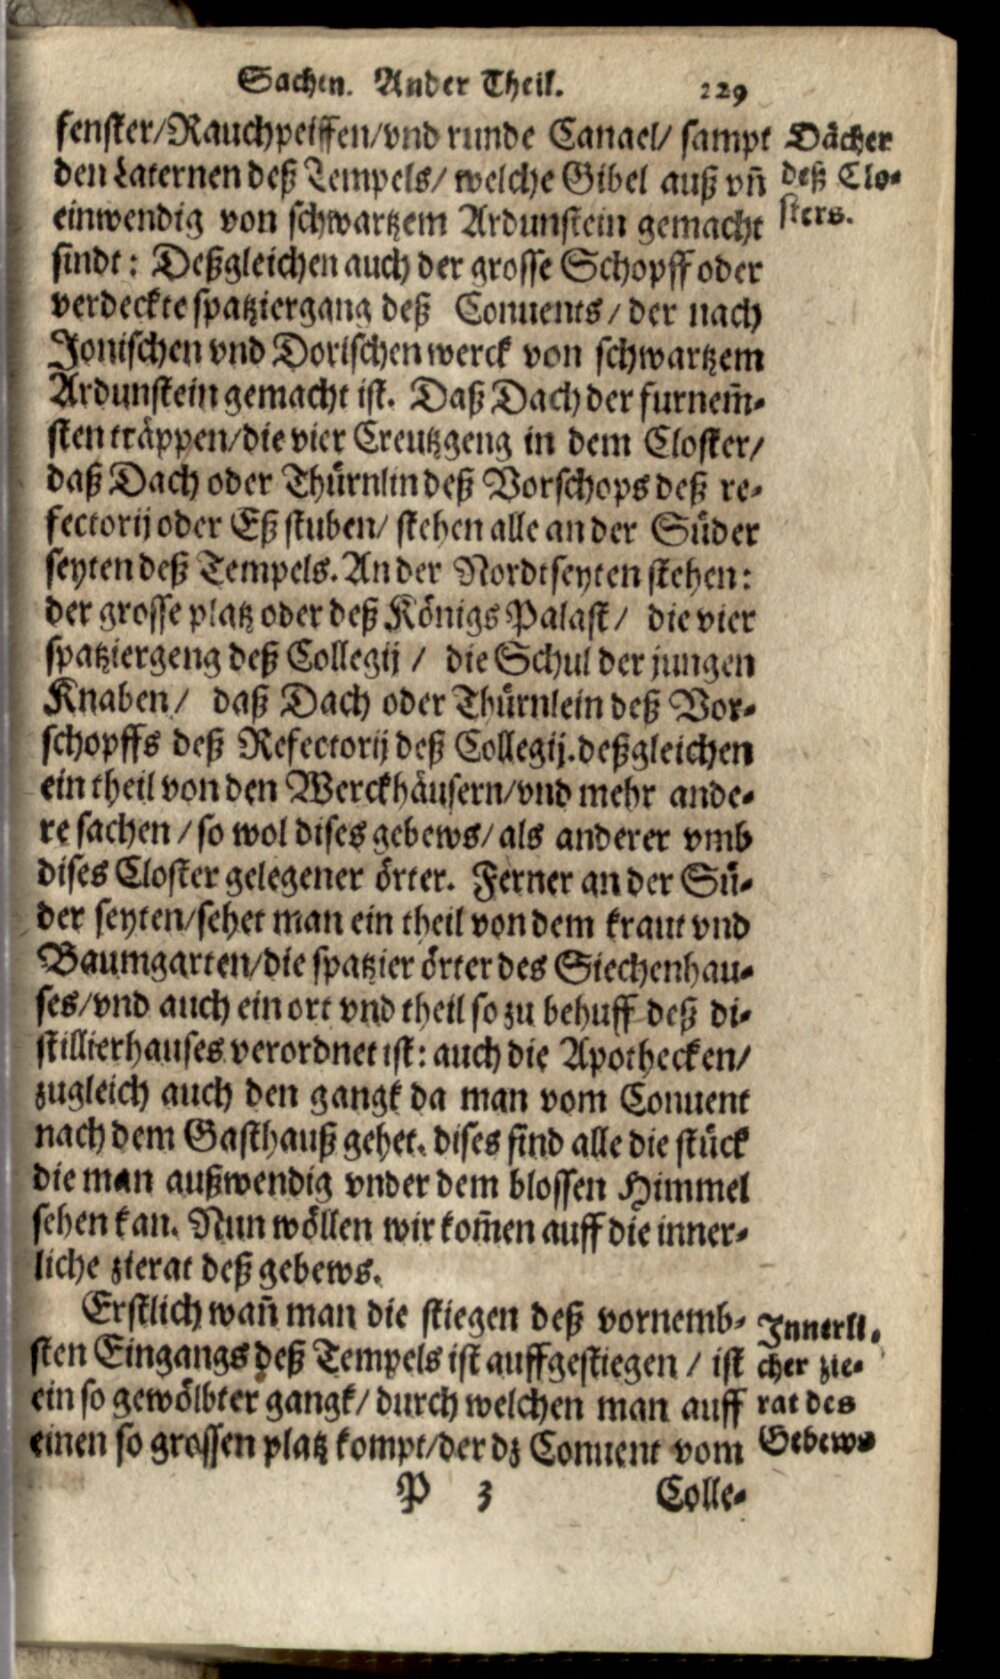 Sachen. Ander Theil. 229
fenster/Rauchpeiffen/vnd runde Canael/ sampt
den Laternen deß Tempels/ welche Gibel auß vn̄
einwendig von schwartzem Ardunstein gemacht
sindt: Deßgleichen auch der grosse Schopff oder
verdeckte spatziergang deß Conuents/ der nach
Jonischen vnd Dorischen werck von schwartzem
Ardunstein gemacht ist. Daß Dach der furnem̄-
sten träppen/die vier Creutzgeng in dem Closter/
daß Dach oder Thürnlin deß Vorschops deß re-
fectorij oder Eß stuben/ stehen alle an der Süder
seyten deß Tempels. An der Nordtseyten stehen:
der grosse platz oder deß Königs Palast/ die vier
spatziergeng deß Collegij / die Schul der jungen
Knaben/ daß Dach oder Thürnlein deß Vor-
schopffs deß Refectorij deß Collegij. deßgleichen
ein theil von den Werckhäusern/vnd mehr ande-
re sachen / so wol dises gebews/ als anderer vmb
dises Closter gelegener örter. Ferner an der Sü-
der seyten/sehet man ein theil von dem kraut vnd
Baumgarten/die spatzier örter des Siechenhau-
ses/vnd auch ein ort vnd theil so zu behuff deß di-
stillierhauses verordnet ist: auch die Apothecken/
zugleich auch den gangk da man vom Conuent
nach dem Gasthauß gehet. dises sind alle die stück
die man außwendig vnder dem blossen Himmel
sehen kan. Nun wöllen wir kom̄en auff die inner-
liche zierat deß gebews.
Erstlich wan̄ man die stiegen deß vornemb-
sten Eingangs deß Tempels ist auffgestiegen / ist
ein so gewölbter gangk/ durch welchen man auff
einen so grossen platz kompt/der dz Conuent vom
P 3 Colle-
Dächer
deß Clo-
sters.
Innerli-
cher zie-
rat des
Gebews